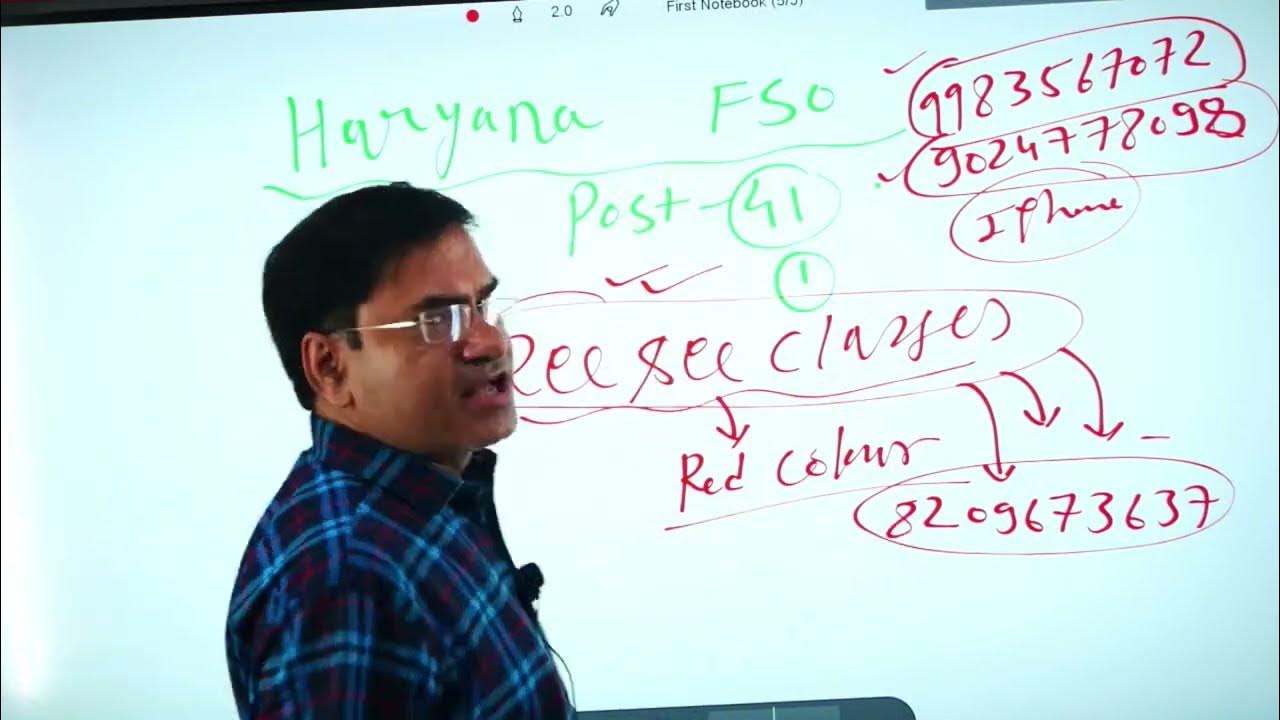 2.0 First Notebook (5/5)
Haryana FSO
9983567072
9024778098
Iphone
Post - 41
1
See classes
Red Colour
8209673637